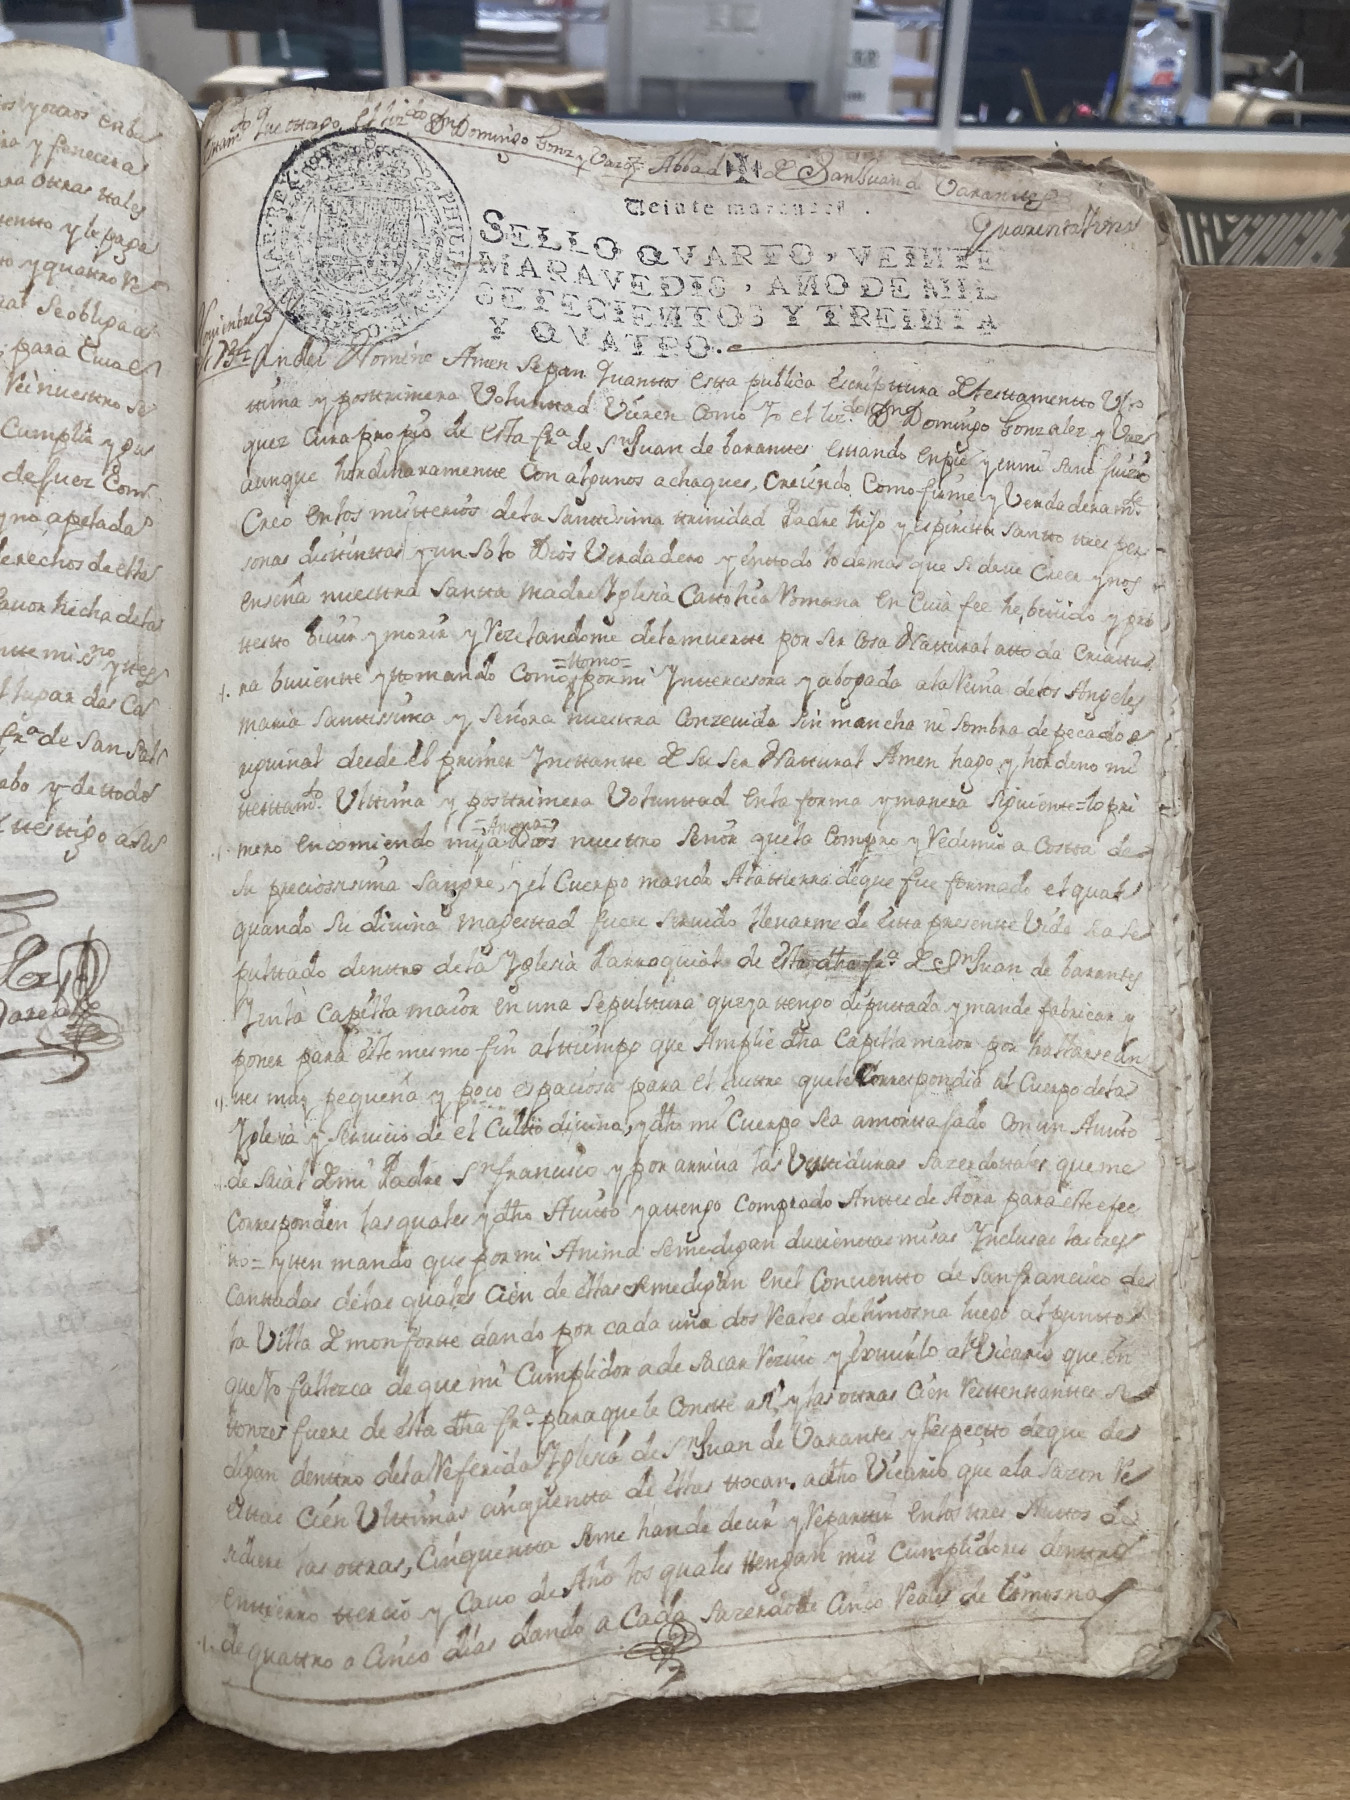 ios y otros en be
ra y fenecera
ara otras tales
ientto y le paga
to y quattro Re
nal Se obliga a
para Cuia el
Rei nuestro Se
Cumplir y pas
de Juez Com
y no apelada
derechos de esta
favor hicha de las
ntte mi sno y ttes
l lugar das Cas
fra de San Sal
ebo y de ttodo
tesstigo a Su
Varela
ttam.to Que ottorgo, el liz.do Dn Domingo Gonz y Vazq.z Abbad ✠ de San Juan de Varanttes
Veinte maravedis.
Quarenta
SELLO QVARTO, VEINTE
MARAVEDIS, AÑO DE MIL
SETECIENTOS Y TREINTA
Y QVATRO.
Noviembre
1734
Yndei Nomine Amen Sepan Quanttos estta publica Escripttura de ttesttamentto Ul
ttima y posttrimera Voluntad Vieren Como Yo el liz.do Dn Domingo Gonzalez y Vaz
quez Cura propio de esta fra de Sn Juan de baranttes esttando en pie y en mi sano Juizio
aunque hordinaramentte Con algunos achaques, Creiendo, Como firme y Verdaderam.te
Creo en los mistterios de la Santtisima ttrinidad Padre hijo y espiritu Santto ttres per
sonas disttinttas y un Solo Dios Verdadero y en ttodo lo demas que se deue Creer y nos
enseña nuesttra Santta madre Yglesia Cattolica Romana en Cuia fee he, biuido y pro
testto biuir y morir y Rezelandome de la muertte por ser Cosa Natural atto da Criattu
ra biuientte y ttomando Como =ttomo= por mi Ynttercesora y abogada a la Reina de los Angeles
maria Santtissima y Señora nuesttra Conzeuida Sin mancha ni Sombra de pecado o
riginal desde el primer Ynsttantte de Su Ser Nattural Amen hago y hordeno mi
ttesttam.to Ulttima y posttrimera Voluntad en la forma y manera Siguientte= lo pri
mero encomiendo mi =Anima= a Dios nuesttro Señor que la Compro y Redimio a Costta de
Su preciosissima Sangre, y el Cuerpo mando A la ttierra de que fue formado el qual
quando Su diuina magesttad fuere Seruido lleuarme de estta presentte Vida Sea Se
pulttado denttro de la Yglesia Parroquial de Estta dha fra de Sn Juan de baranttes
Y en la Capilla maior en una Sepulttura que ya ttengo diputtada y mande fabricar y
poner para estte mesmo fin al ttiempo que Amplie dha Capilla maior por hallarse an
ttes muy pequeña y poco espaciosa para el lusttre que le Correspondia al Cuerpo de la
Yglesia y Seruicio de el Cultto diuino, y dho mi Cuerpo Sea amorttajado Con un Auitto
de Saial de mi Padre Sn francisco y por arriua las Vesttiduras Sazerdottales que me
Corresponden las quales y dho Auitto ya ttengo Comprado Anttes de Aora para estte efec
tto= ytten mando que por mi Anima Se me digan duciensttas misas Ynclusas las ttres
Canttadas de las quales Cien de ellas se me digan en el Conuentto de San francisco de
la Villa de monfortte dando por cada una dos Reales de limosna luego al puntto
que Yo fallezca de que mi Cumplidor a de Sacar Reziuo y exiuirlo al Vicario que en
ttonzes fuere de estta dha fra para que le Constte asi, y las ottras Cien Resttanttes Se
digan denttro de la Referida Yglesia de Sn Juan de Varanttes y Respectto de que de
esttas Cien Ulttimas cinquentta de ellas ttocan a dho Vicario que a la Sazon Re
sidiere las ottras, Cinquentta Se me han de decir y Reparttir en los ttres Auttos de
enttierro ttercio y Cauo de Año los quales ttengan mis Cumplidores denttro
de quattro o Cinco dias dando a Cada Sazerdotte Cinco Reales de limosna